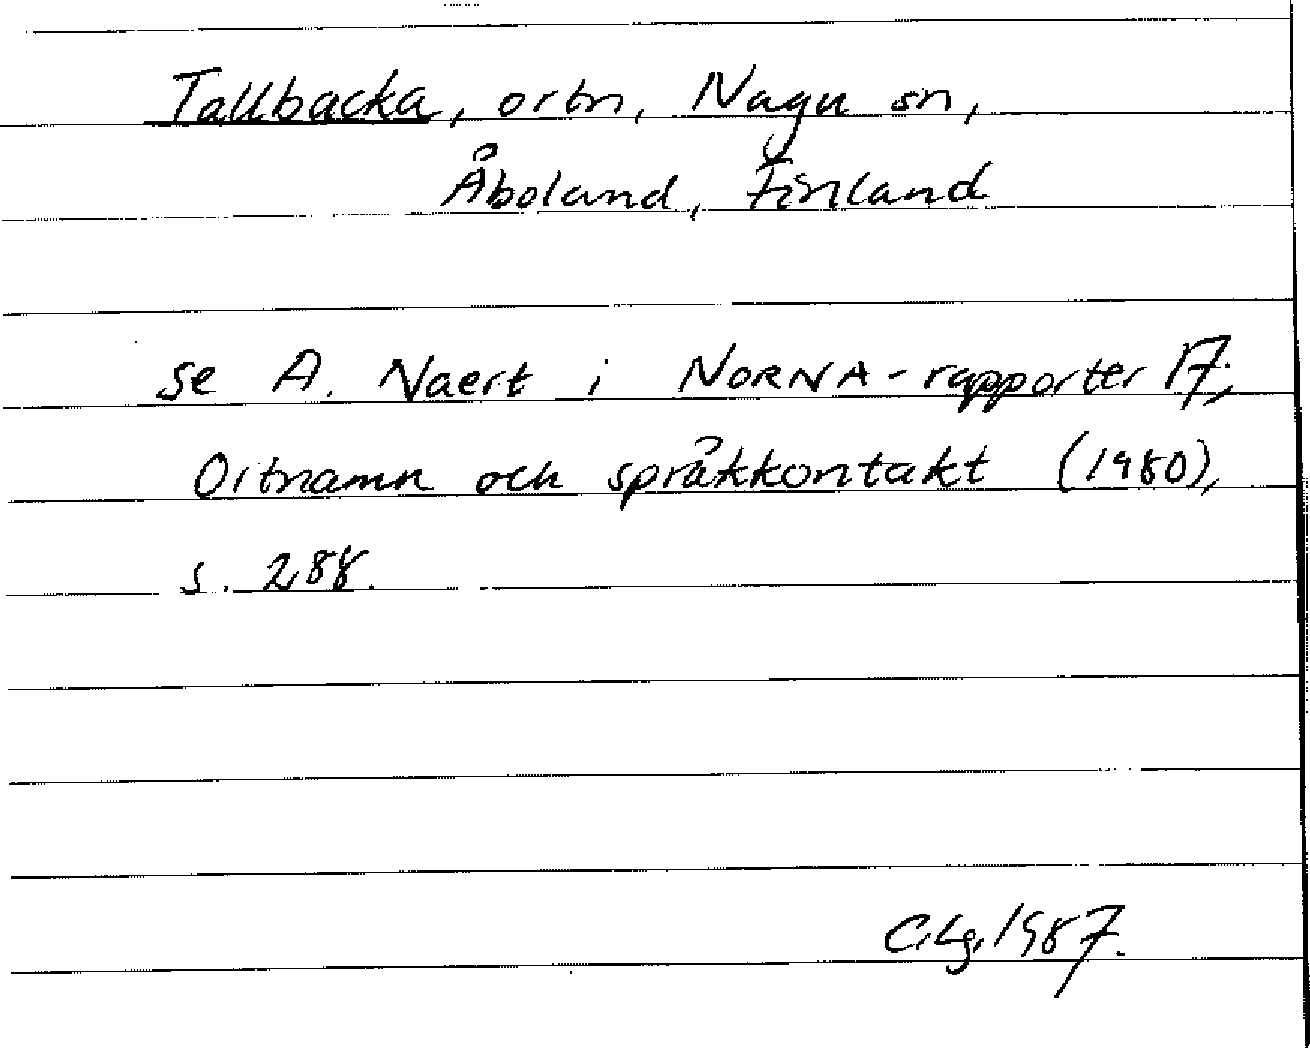 Tallbacka, ortn, Nagu sn,
Åboland, Finland
se A. Naert i NORNA-rapporter 17,
Ortnamn och språkkontakt (1980),
s. 288.
C.Lg. 1987.